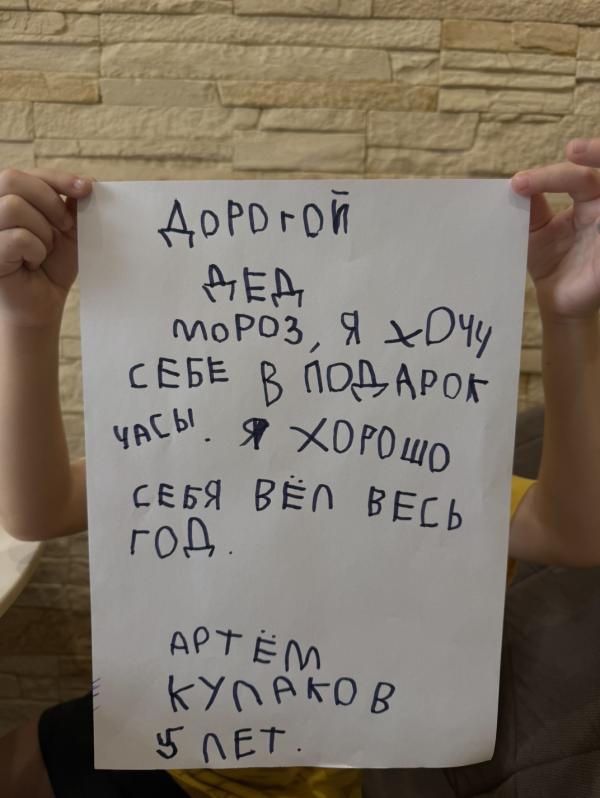 ДОРОГОЙ
ДЕД
МОРОЗ, Я ХОЧУ
СЕБЕ В ПОДАРОК
ЧАСЫ. Я ХОРОШО
СЕБЯ ВЁЛ ВЕСЬ
ГОД.
АРТЁМ
КУЛАКОВ
5 ЛЕТ.